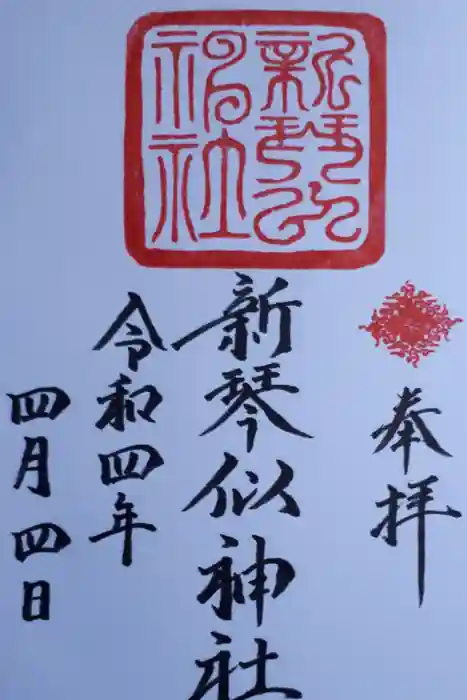 奉拝
新琴似神社
新琴似神社
令和四年
四月四日